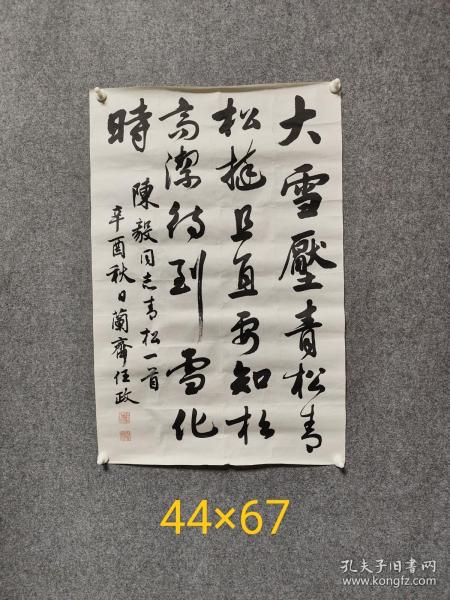 大雪壓青松青
松挺且直要知松
高潔待到雪化
時
陳毅同志青松一首
辛酉秋日蘭齋任政
44×67
孔夫子旧书网
www.kongfz.com